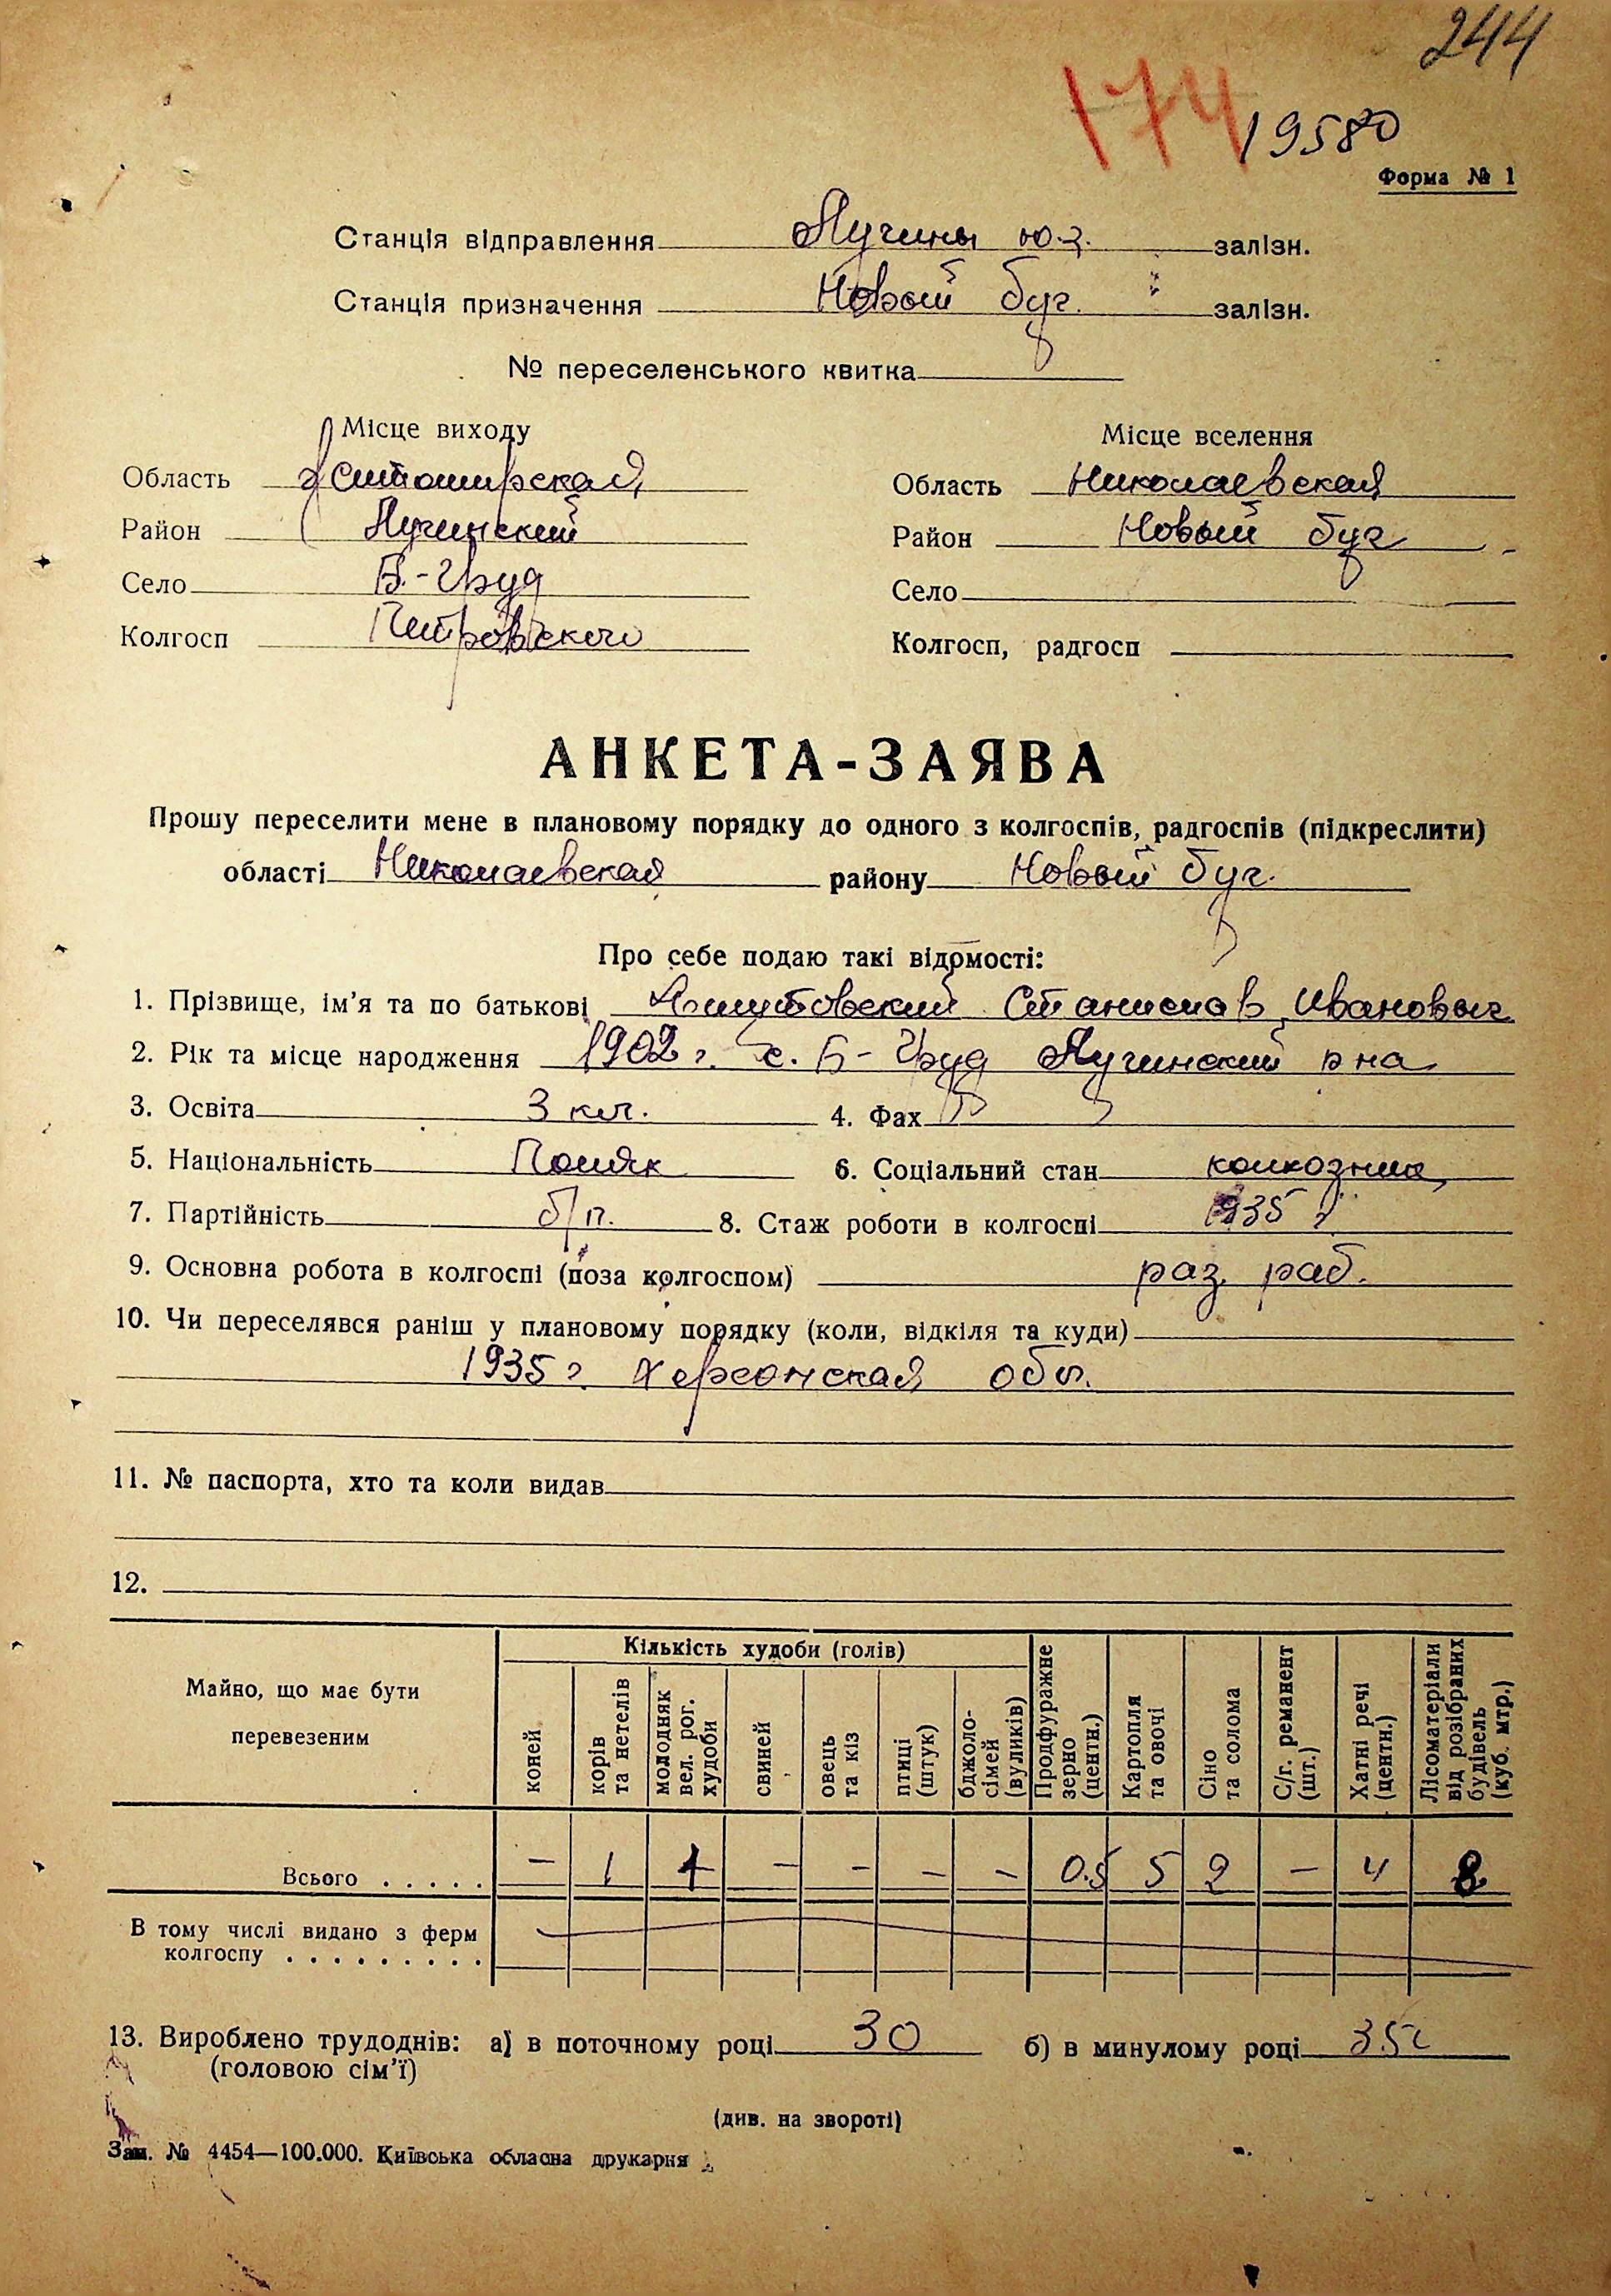 244
174
19580
Форма № 1
Станція відправлення Лучины ю.з. залізн.
Станція призначення Новый Буг. залізн.
№ переселенського квитка
Місце виходу
Область Житомирская
Район Лучинский
Село Б.-Груд
Колгосп Петровского
Місце вселення
Область Николаевская
Район Новый Буг
Село
Колгосп, радгосп
АНКЕТА-ЗАЯВА
Прошу переселити мене в плановому порядку до одного з колгоспів, радгоспів (підкреслити)
області Николаевская району Новый Буг.
Про себе подаю такі відомості:
1. Прізвище, ім'я та по батькові Станислав Иванович
2. Рік та місце народження 1902 г. с. Б-Груд Лучинский р на
3. Освіта 3 кл. 4. Фах
5. Національність Поляк 6. Соціальний стан колхозник
7. Партійність б/п. 8. Стаж роботи в колгоспі 1935 г
9. Основна робота в колгоспі (поза колгоспом) раз. раб.
10. Чи переселявся раніш у плановому порядку (коли, відкіля та куди)
1935 г. Херсонская обл.
11. № паспорта, хто та коли видав
12.
Майно, що має бути перевезеним
Кількість худоби (голів)
коней
корів та нетелів
молодняк вел. рог. худоби
свиней
овець та кіз
птиці (штук)
бджоло-сімей (вуликів)
Продфуражне зерно (центн.)
Картопля та овочі
Сіно та солома
С/г. реманент (шт.)
Хатні речі (центн.)
Лісоматеріали від розібраних будівель (куб. мтр.)
Всього . . . . . – 1 1 – – – – 0.5 5 2 – 4 8
В тому числі видано з ферм
колгоспу . . . . . . . . .
13. Вироблено трудоднів: а) в поточному році 30 б) в минулому році
(головою сім'ї)
(див. на звороті)
Зам. № 4454—100.000. Київська обласна друкарня